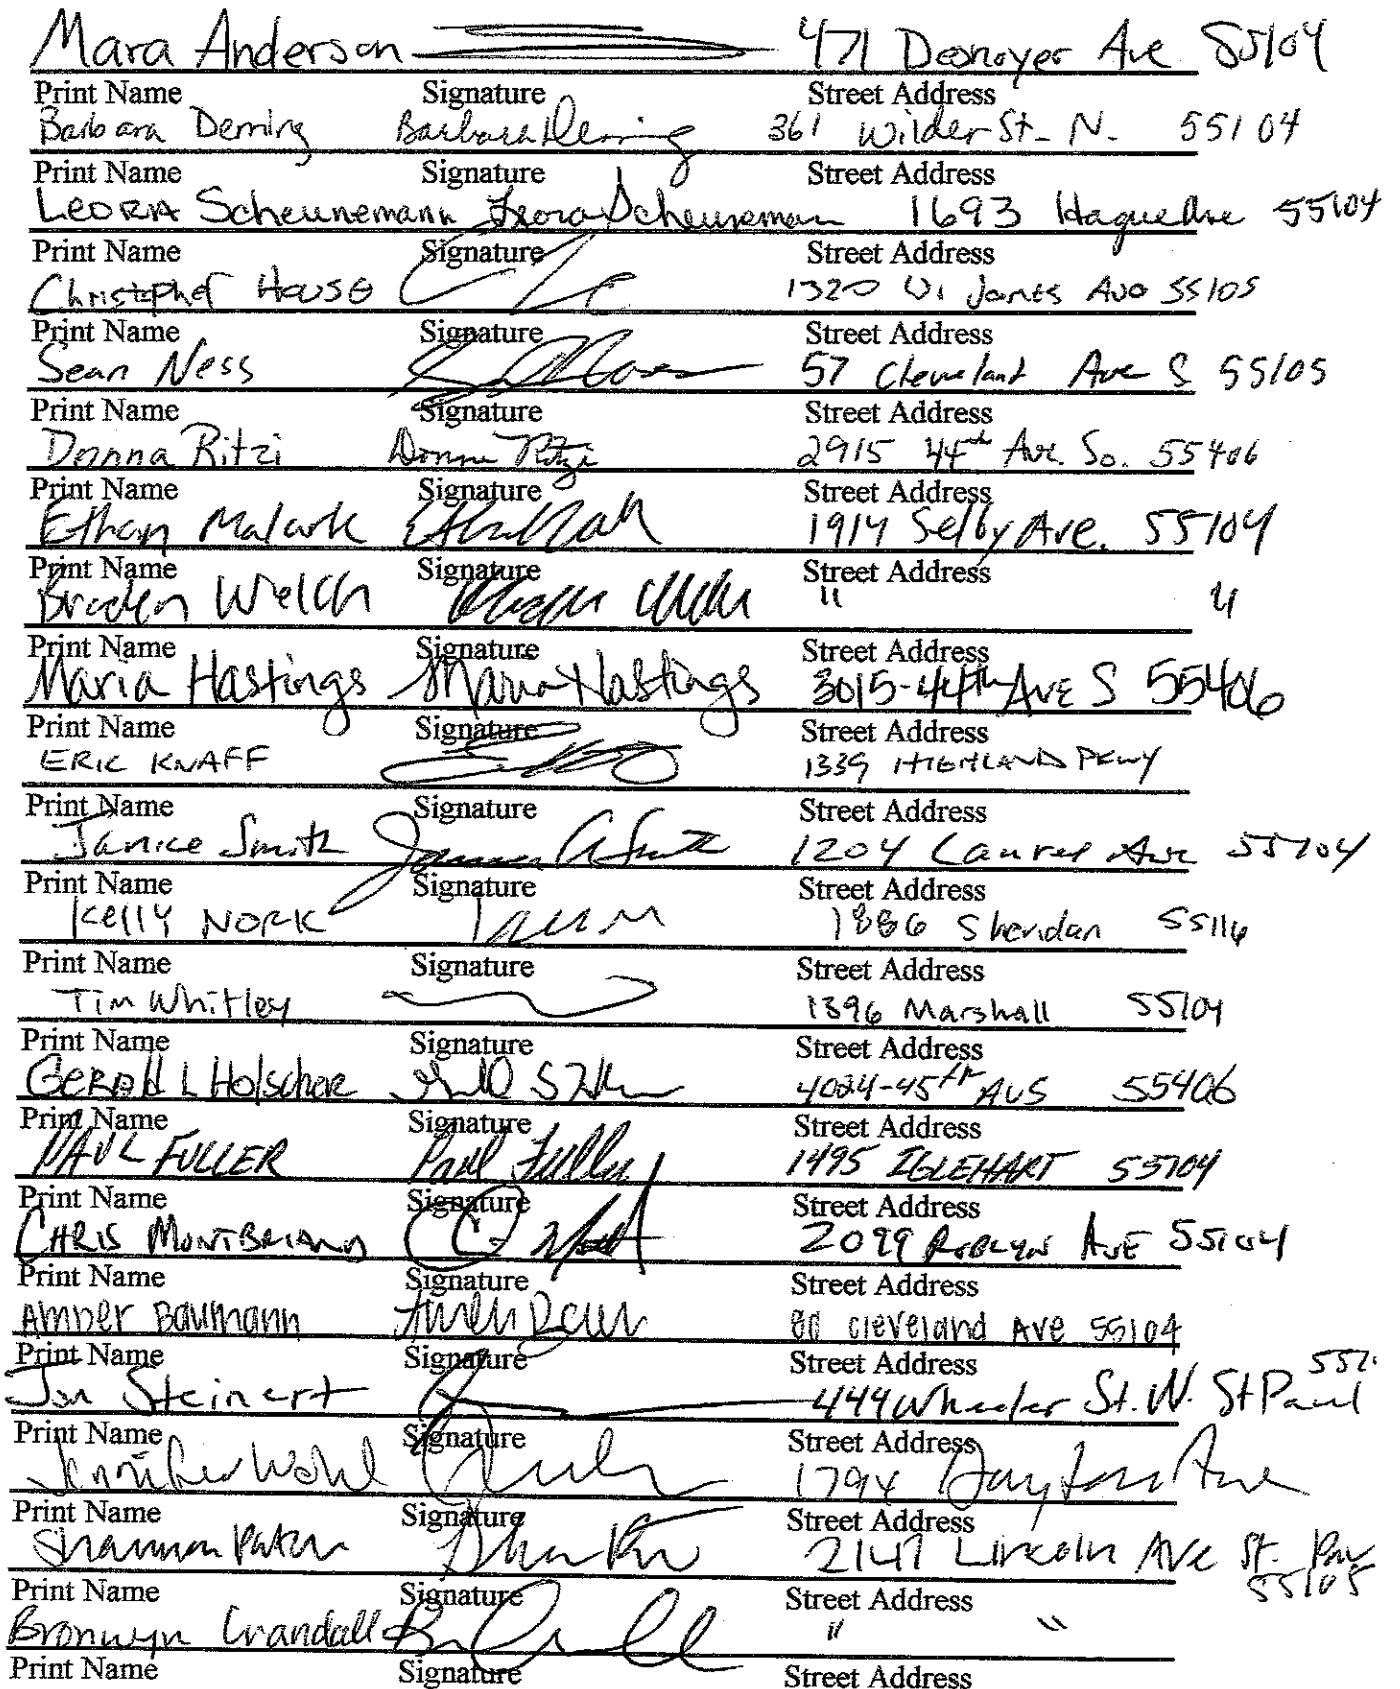 Mara Anderson 471 Desnoyer Ave 55104
Print Name Signature Street Address
Barbara Deming Barbara Deming 361 Wilder St. N. 55104
Print Name Signature Street Address
LEORA Scheunemann Leora Scheunemann 1693 Hague Ave 55104
Print Name Signature Street Address
Christopher House 1320 James Ave 55105
Print Name Signature Street Address
Sean Ness 57 Cleveland Ave S 55105
Print Name Signature Street Address
Donna Ritzi Donna Ritzi 2915 44th Ave. So. 55406
Print Name Signature Street Address
Ethan Malark 1914 Selby Ave. 55104
Print Name Signature Street Address
Braden Welch " "
Print Name Signature Street Address
Maria Hastings Maria Hastings 3015-44th AVE S 55406
Print Name Signature Street Address
ERIC KNAFF 1339 HIGHLAND PKWY
Print Name Signature Street Address
Janice Smith 1204 Laurel Ave 55104
Print Name Signature Street Address
Kelly NORK 1886 Sheridan 55116
Print Name Signature Street Address
Tim Whitley 1396 Marshall 55104
Print Name Signature Street Address
GERALD L Holscher 4024-45th AVS 55406
Print Name Signature Street Address
PAUL FULLER Paul Fuller 1495 IGLEHART 55104
Print Name Signature Street Address
CHRIS MONTBRIAND 2099 ROBLYN AVE 55104
Print Name Signature Street Address
Amber Baumann 80 cleveland Ave 55104
Print Name Signature Street Address
Jon Steinert 444 Wheeler St. N. St Paul
Print Name Signature Street Address
Jennifer Wohl 1794 Dayton Ave
Print Name Signature Street Address
Shannon 2147 Lincoln Ave St. 55105
Print Name Signature Street Address
Bronwyn Crandall " "
Print Name Signature Street Address